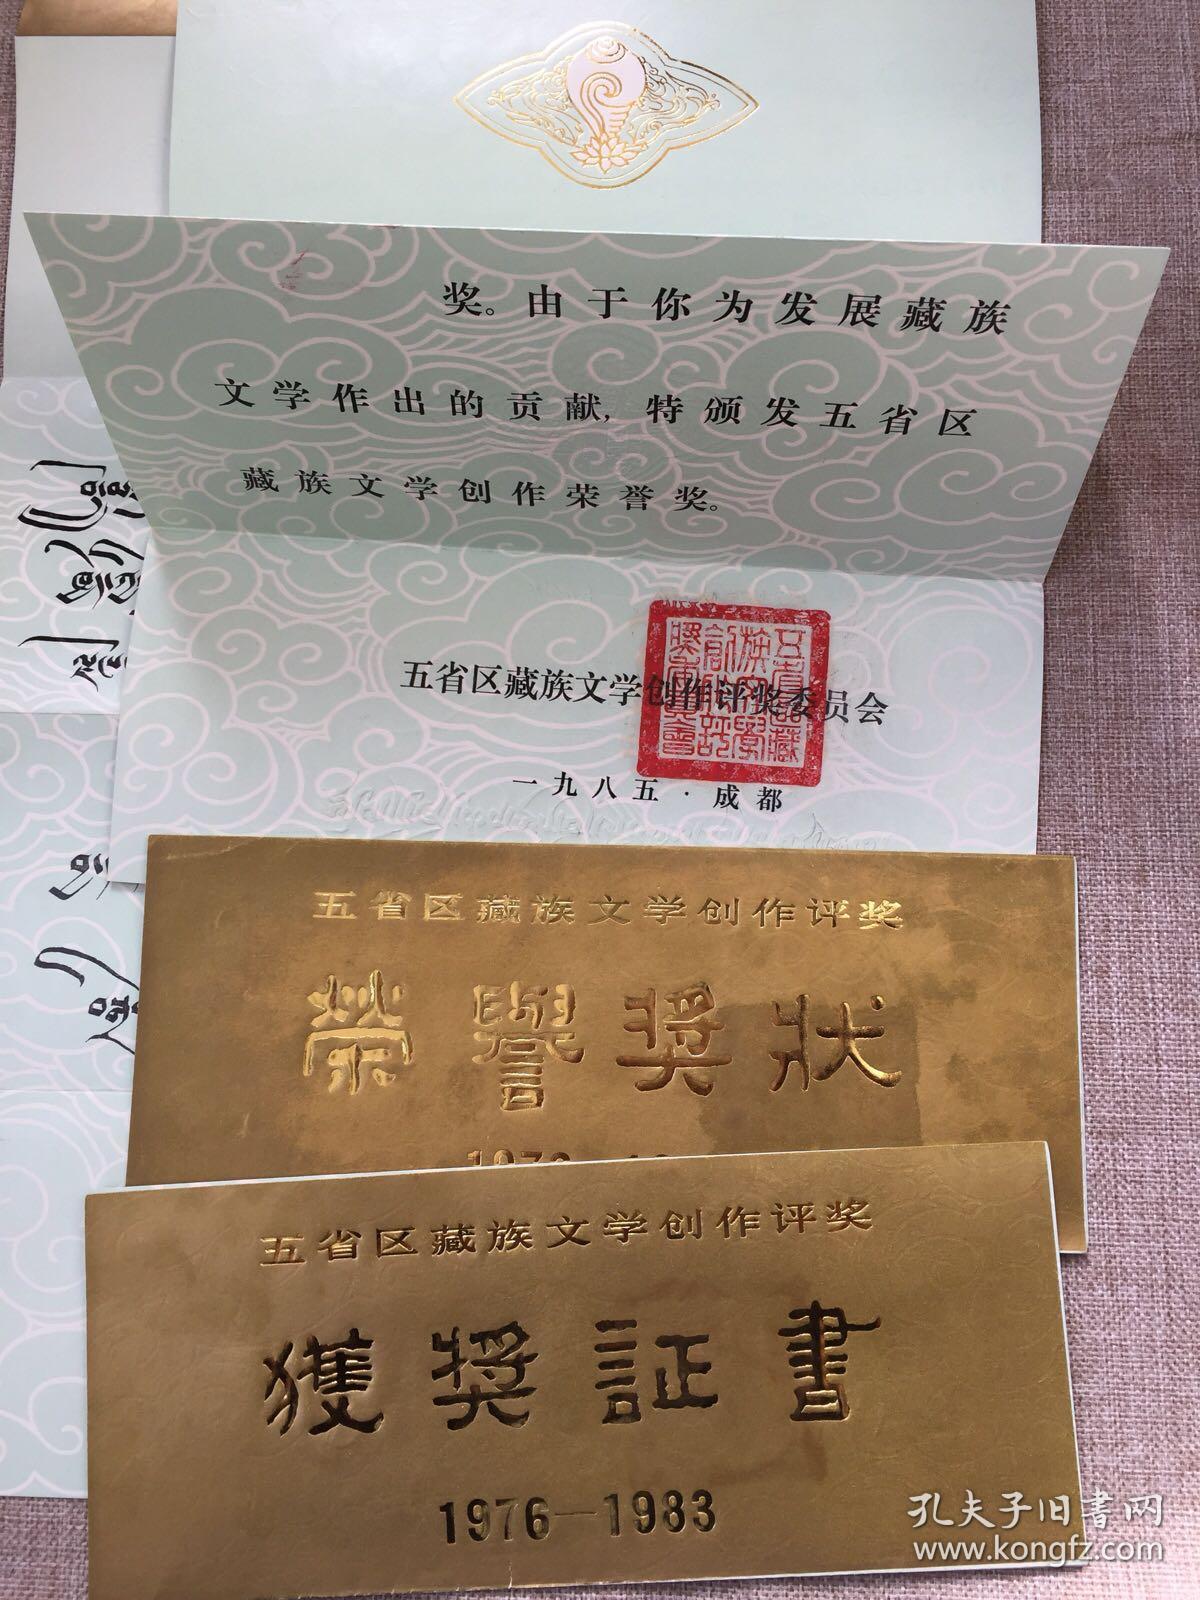 奖。由于你为发展藏族
文学作出的贡献,特颁发五省区
藏族文学创作荣誉奖。
五省区藏族文学创作评奖委员会
一九八五·成都
五省区藏族文学创作评奖
榮譽獎狀
五省区藏族文学创作评奖
獲獎証書
1976—1983
孔夫子旧书网
www.kongfz.com